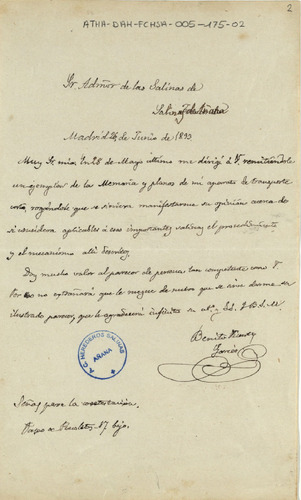 2
ATHA-DAH-FCHSA-005-175-02
Sr. Admőr de las Salinas de
Salinas de Añana
Madrid 26 de Junio de 1893
Muy Sr. mio: En 28 de Mayo último me dirigí a V. remitiendole
un ejemplar de la Memoria y planos de mi aparato de transporte
rogándole que se sirviera manifestarme su opinión acerca de
si considera aplicables á esas importantes salinas el procedimiento
y el mecanismo allí descritos
Doy mucho valor al parecer de persona tan competente como V.
Por eso no extrañará que le ruegue de nuevo que se sirva darme su
ilustrado parecer, que le agradecerá infinito su
Benito
T.C. HEREDEROS SALINAS
AÑANA
Señas para la contestación
Paseo de Recoletos - 17 bajo.